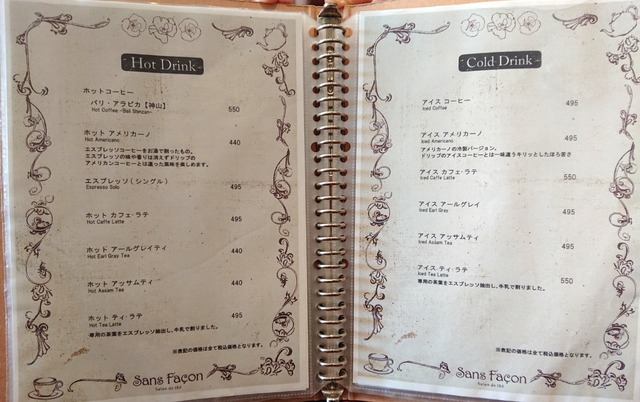 Hot Drink
ホットコーヒー
バリ・アラビカ【神山】 550
Hot Coffee ~Bali Shinzan~
ホット アメリカーノ 440
Hot Americano
エスプレッソコーヒーをお湯で割ったもの。
エスプレッソの味や香りは消えずドリップの
アメリカンコーヒーとは違った風味を楽しめます。
エスプレッソ(シングル) 495
Espresso Solo
ホット カフェ・ラテ 495
Hot Caffe Latte
ホット アールグレイティ 440
Hot Earl Gray Tea
ホット アッサムティ 440
Hot Assam Tea
ホット ティ・ラテ 495
Hot Tea Latte
専用の茶葉をエスプレッソ抽出し、牛乳で割りました。
※表記の価格は全て税込価格となります。
Sans Façon
Salon de thé
Cold Drink
アイス コーヒー 495
Iced Coffee
アイス アメリカーノ 495
Iced Americano
アメリカーノの冷製バージョン。
ドリップのアイスコーヒーとは一味違うキリッとしたほろ苦さ
アイス カフェ・ラテ 550
Iced Caffe Latte
アイス アールグレイ 495
Iced Earl Gray
アイス アッサムティ 495
Iced Assam Tea
アイス・ティ・ラテ 550
Iced Tea Latte
専用の茶葉をエスプレッソ抽出し、牛乳で割りました。
※表記の価格は全て税込価格となります。
Sans Façon
Salon de thé